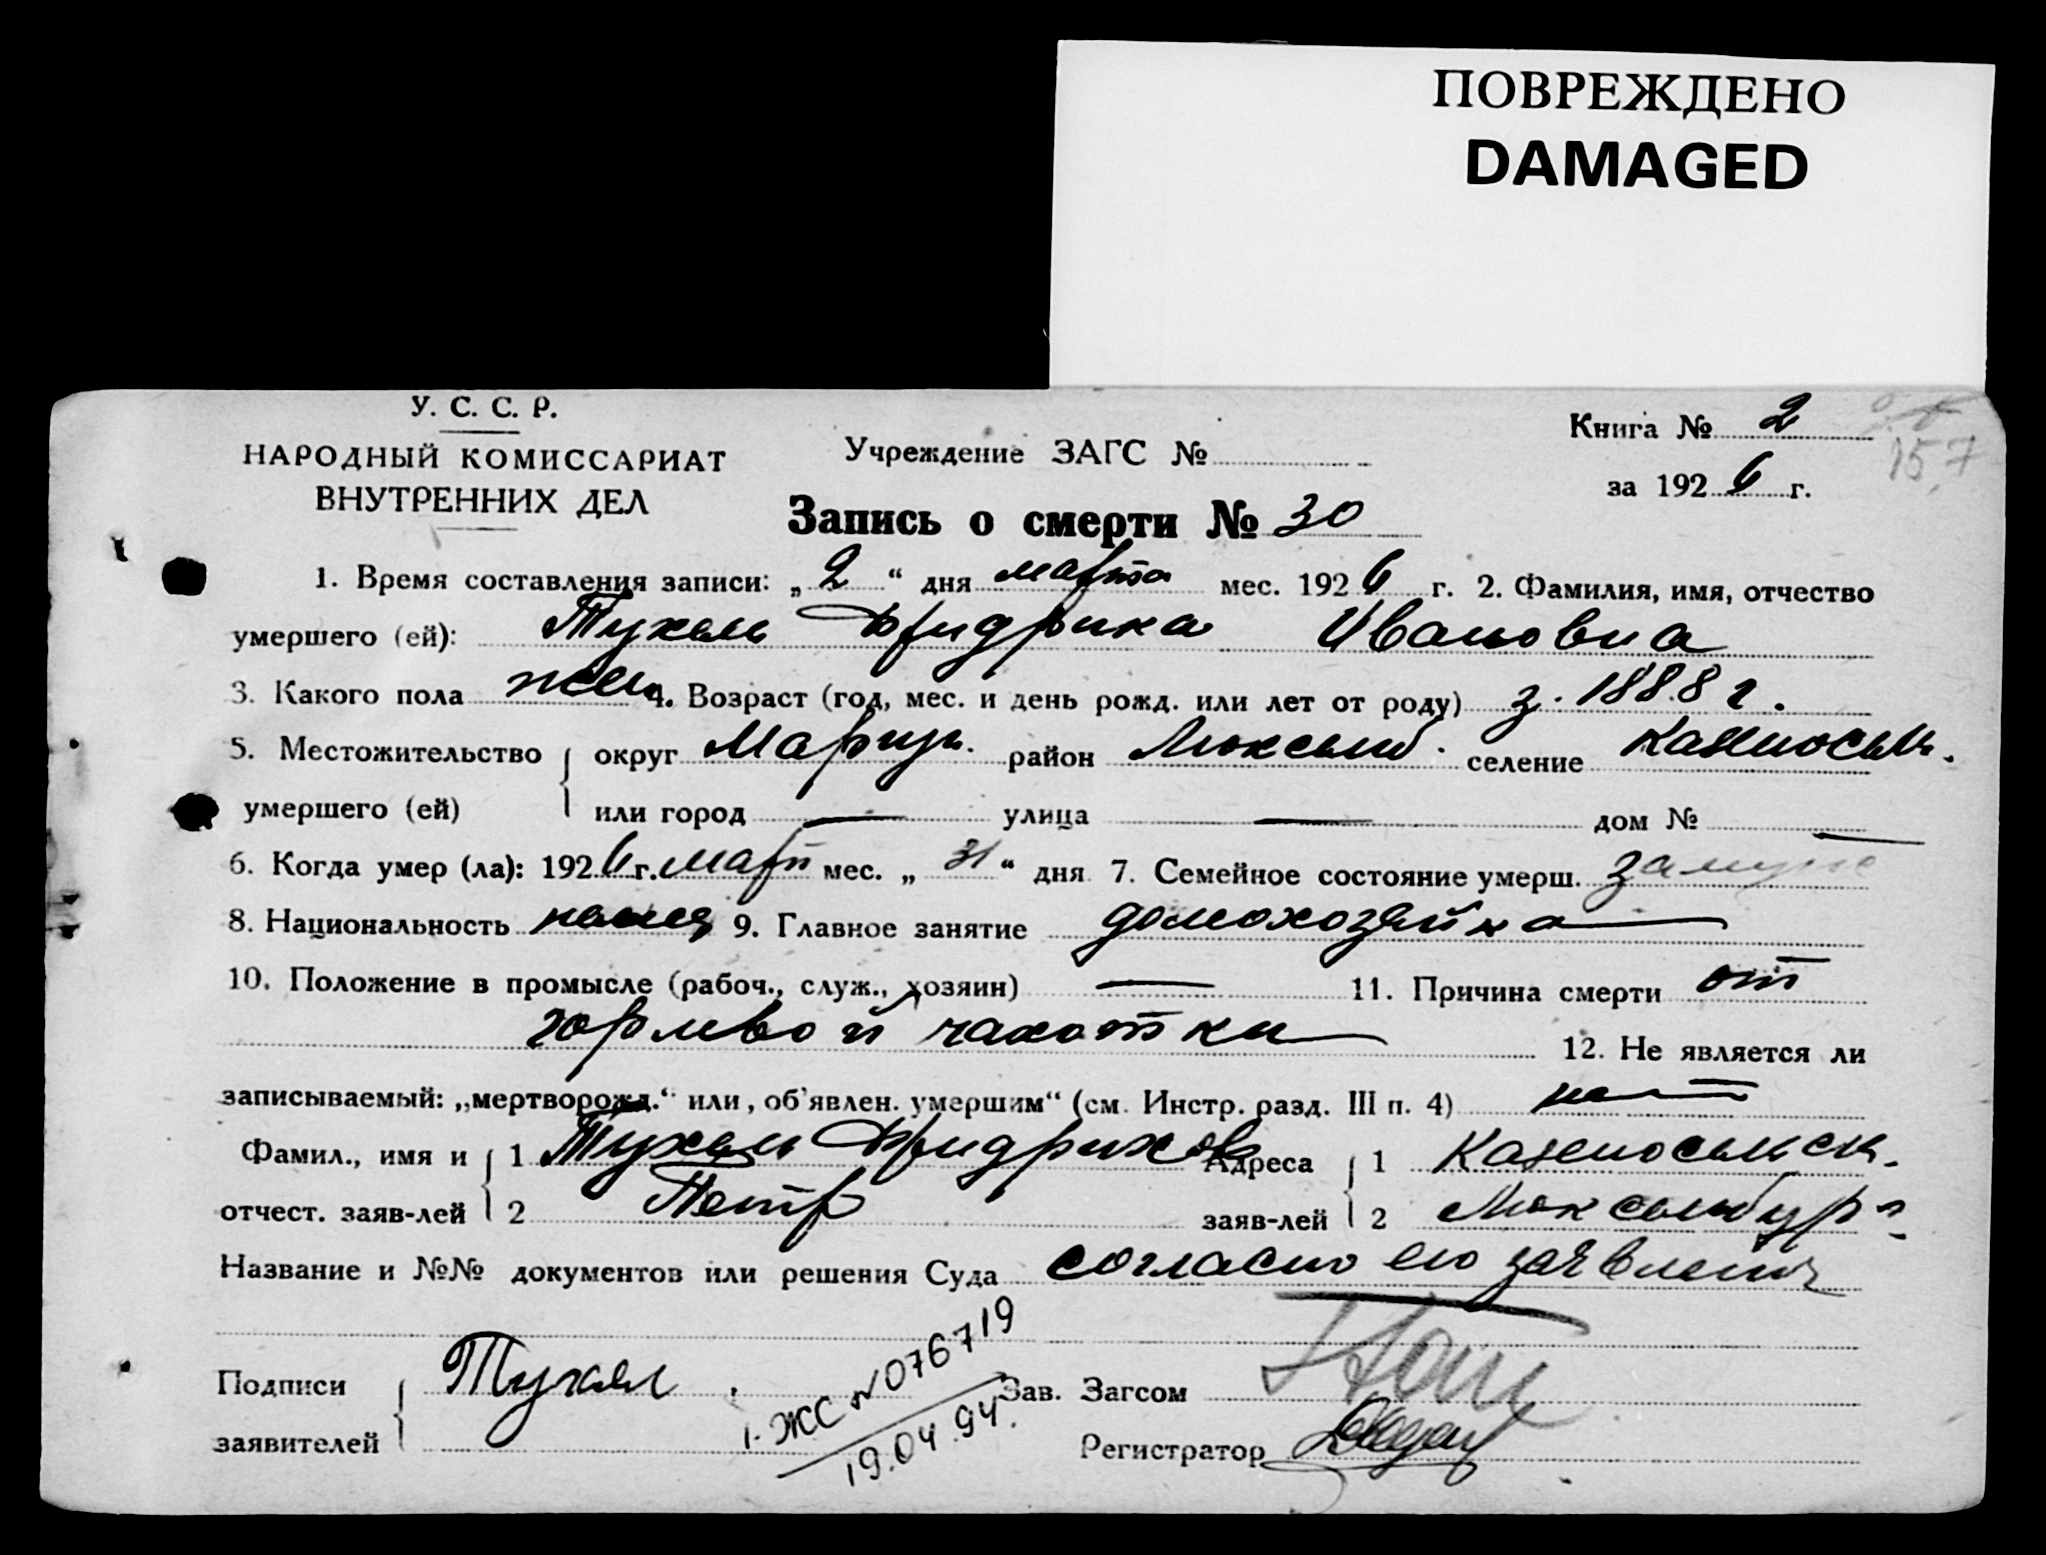 ПОВРЕЖДЕНО
DAMAGED
У. С. С. Р.
НАРОДНЫЙ КОМИССАРИАТ
ВНУТРЕННИХ ДЕЛ
Учреждение ЗАГС №
Книга № 2
157
за 1926 г.
Запись о смерти № 30
1. Время составления записи: „ 2 “ дня марта мес. 1926 г. 2. Фамилия, имя, отчество
умершего (ей): Тухель Фридрика Ивановна
3. Какого пола жен. 4. Возраст (год, мес. и день рожд. или лет от роду) з. 1888 г.
5. Местожительство умершего (ей) округ Мариуп. район Люксемб. селение
или город — улица — дом № —
6. Когда умер (ла): 1926 г. март мес. „ 31 “ дня 7. Семейное состояние умерш. замуж
8. Национальность немка 9. Главное занятие домохозяйка
10. Положение в промысле (рабоч., служ., хозяин) — 11. Причина смерти от
горловой чахотки 12. Не является ли
записываемый: „мертворожд.“ или „об'явлен. умершим“ (см. Инстр. разд. III п. 4) нет
Фамил., имя и отчест. заяв-лей 1 Тухель Фридрихов
2 Петр
Адреса заяв-лей 1
2 Люксембург
Название и №№ документов или решения Суда согласно его заявления
Подписи заявителей Тухель
I-ЖС № 076719
19.04.94.
Зав. Загсом
Регистратор